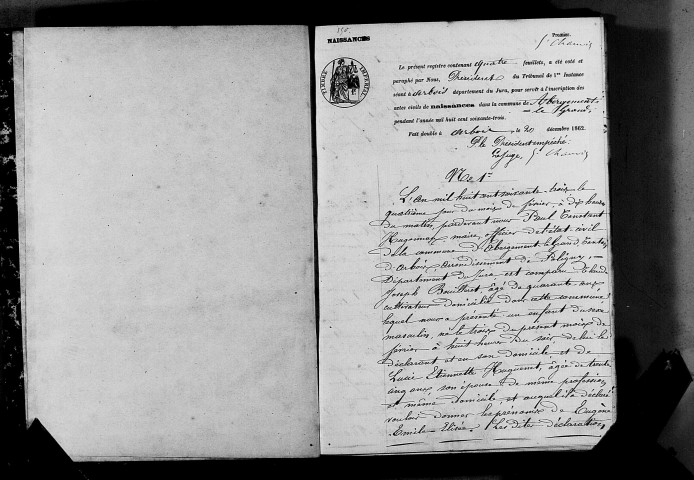 NAISSANCES
Premier,
St Chamin
Le présent registre contenant quatre feuillets, a été coté et
paraphé par Nous, Président du Tribunal de 1re Instance
séant à arbois département du Jura, pour servir à l'inscription des
actes civils de naissances dans la commune de Abergement-
le-Grand,
pendant l'année mil huit cent soixante-trois.
Fait double à arbois, le 20 décembre 1862.
P. le Président empêché
le juge, St Chamin
TIMBRE IMPERIAL
No 1er
L'an mil huit cent soixante-trois le
quatrième jour du mois de février à dix heures
du matin, pardevant nous Paul Constant
Hugonnaux maire, officier de l'état civil
de la commune d'Abergement le Grand Canton
d'arbois, arrondissement de Poligny,
Département du Jura est comparu
Joseph Bouilleret, âgé de quarante ans,
cultivateur domicilié dans cette commune
lequel nous a présenté un enfant du sexe
masculin, né le trois du présent mois de
février à huit heures du soir, de lui le
déclarant et en son domicile et de
Lucie Etiennette Huguenet, âgée de trente
cinq ans son épouse de même profession
et même domicile et auquel il a déclaré
vouloir donner les prénoms de Eugène
Emile Elisée. Les dites déclarations